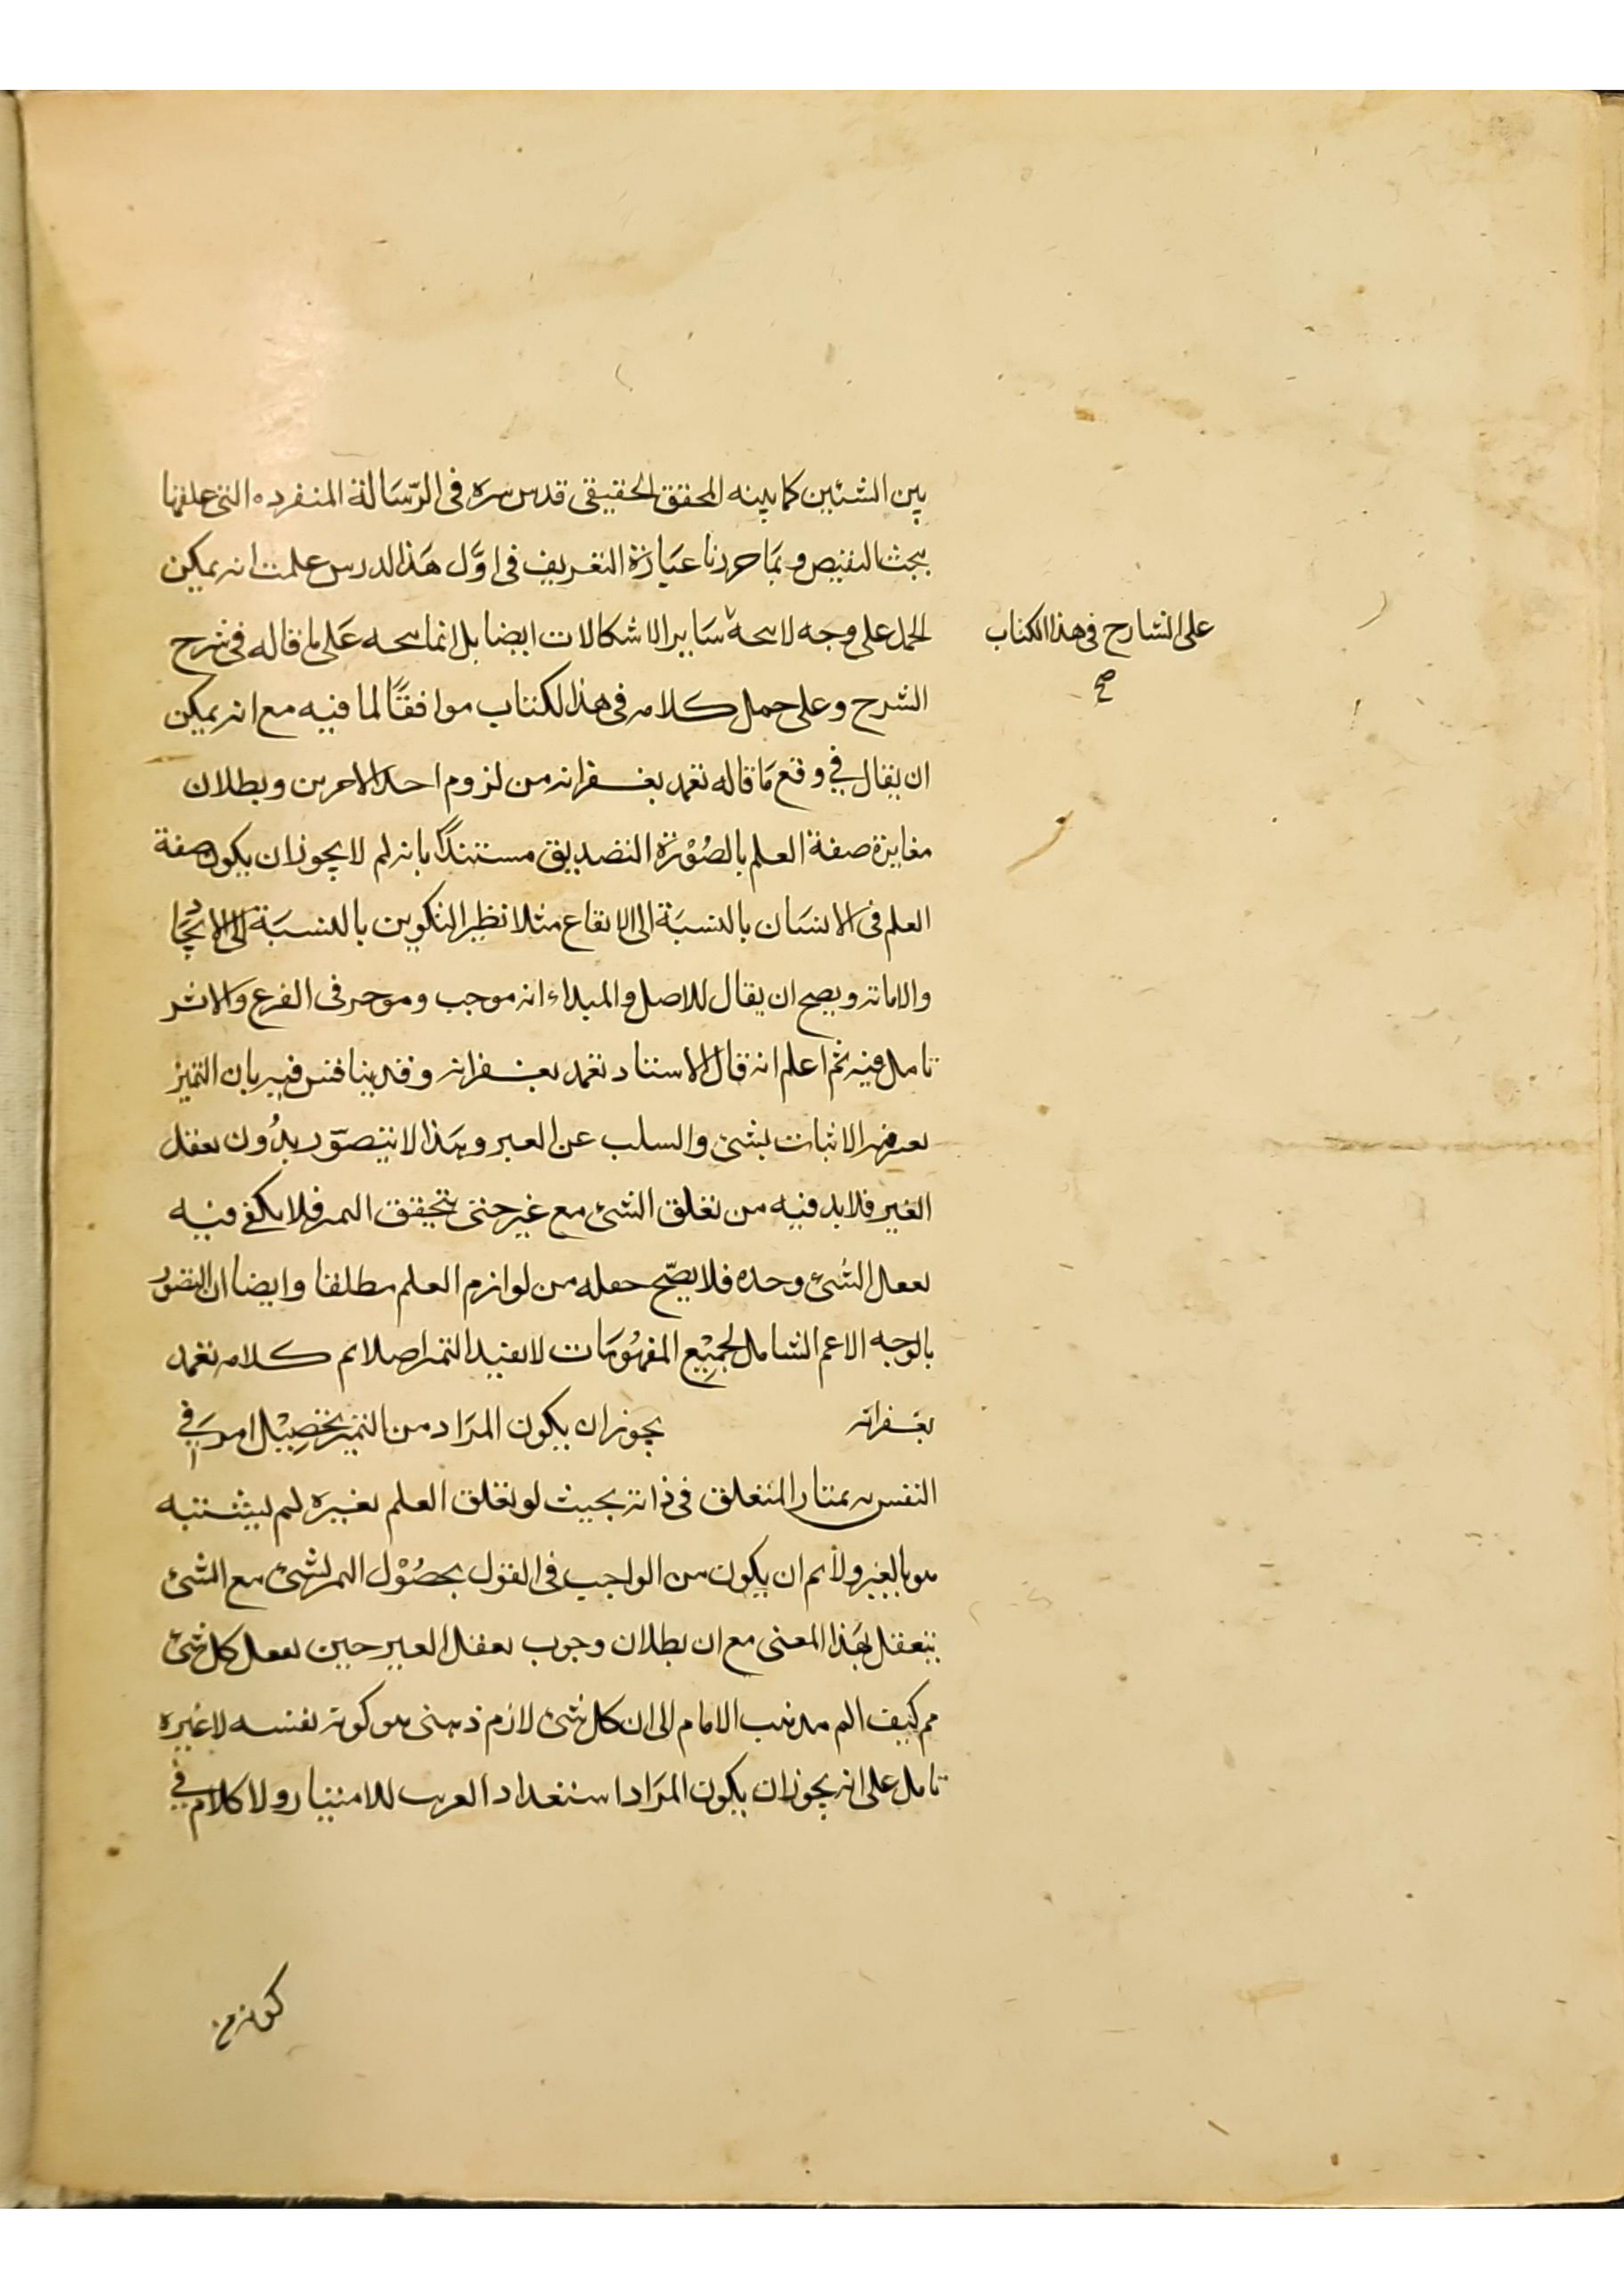 بين الشيئين كما بينه المحقق الحقيقى قدس سره فى الرّسَالة المنفرده التى علقها
ببحث النقيض و بمَا حررنا عبَارَة التعريف فى اوَّل هَذا الدرس علمت انه يمكن
الحمل على وجه لا يتجه سَاير الاشكالات ايضا بل انما يتجه عَلى ما قاله فى شرح
على الشارح فى هذا الكتاب
صح
الشرح وعلى حمل كلامه فى هذا الكتاب موافقًا لما فيه مع انه يمكن
ان يقال فى دفع مَا قاله تغمد بغفرانه من لزوم احد الامرين وبطلان
مغايرة صفة العلم بالصُوْرَة التصديق مستندًا بانه لم لا يجوز ان يكون صفة
العلم فى الانسَان بالنسبَة الى الايقاع مثلا نظير التكوين بالنسبَة الى الايجَاد
والاماته ويصح ان يقال للاصل والمبداء انه موجب وموجر فى الفرع والاثر
تامل فيه ثم اعلم انه قال الاستاد تغمد بغفرانه وقد يناقش فيه بان التميز
الاثبات بشئ والسلب عن الغير وهَذا لا يتصوّر بدُون تعقل
الغير فلا بد فيه من تعلق الشئ مع غير حتى يتحقق التميز فلا يكفى فيه
تعقل الشئ وحده فلا يصّح جعله من لوازم العلم مطلقا وايضا ان التصور
بالوجه الاعم الشامل لجمِيْع المفهُومَات لا يفيد التميز اصلا تم كلامه تغمد
بغفرانه يجوز ان يكون المرَاد من التميز تحْصِيْل امر فى
النفس به يمتاز المتعلق فى ذاته بحيث لو تعلق العلم بغيره لم يشتبه
هو بالغير ولا نم ان يكون من الواجب فى القول بحصُوْل التميز لشئ مع الشئ
بتعقل بهَذا المعنى مع ان بطلان وجوب تعقل الغير حين تعقل كل شئ
مم كيف الم مذهب الامام الى ان كل شئ لازم ذهنى هو كونه نفسه لا غيره
تامل على انه يجوز ان يكون المرَاد استعداد القرب للامتياز ولا كلام فى
كونه من